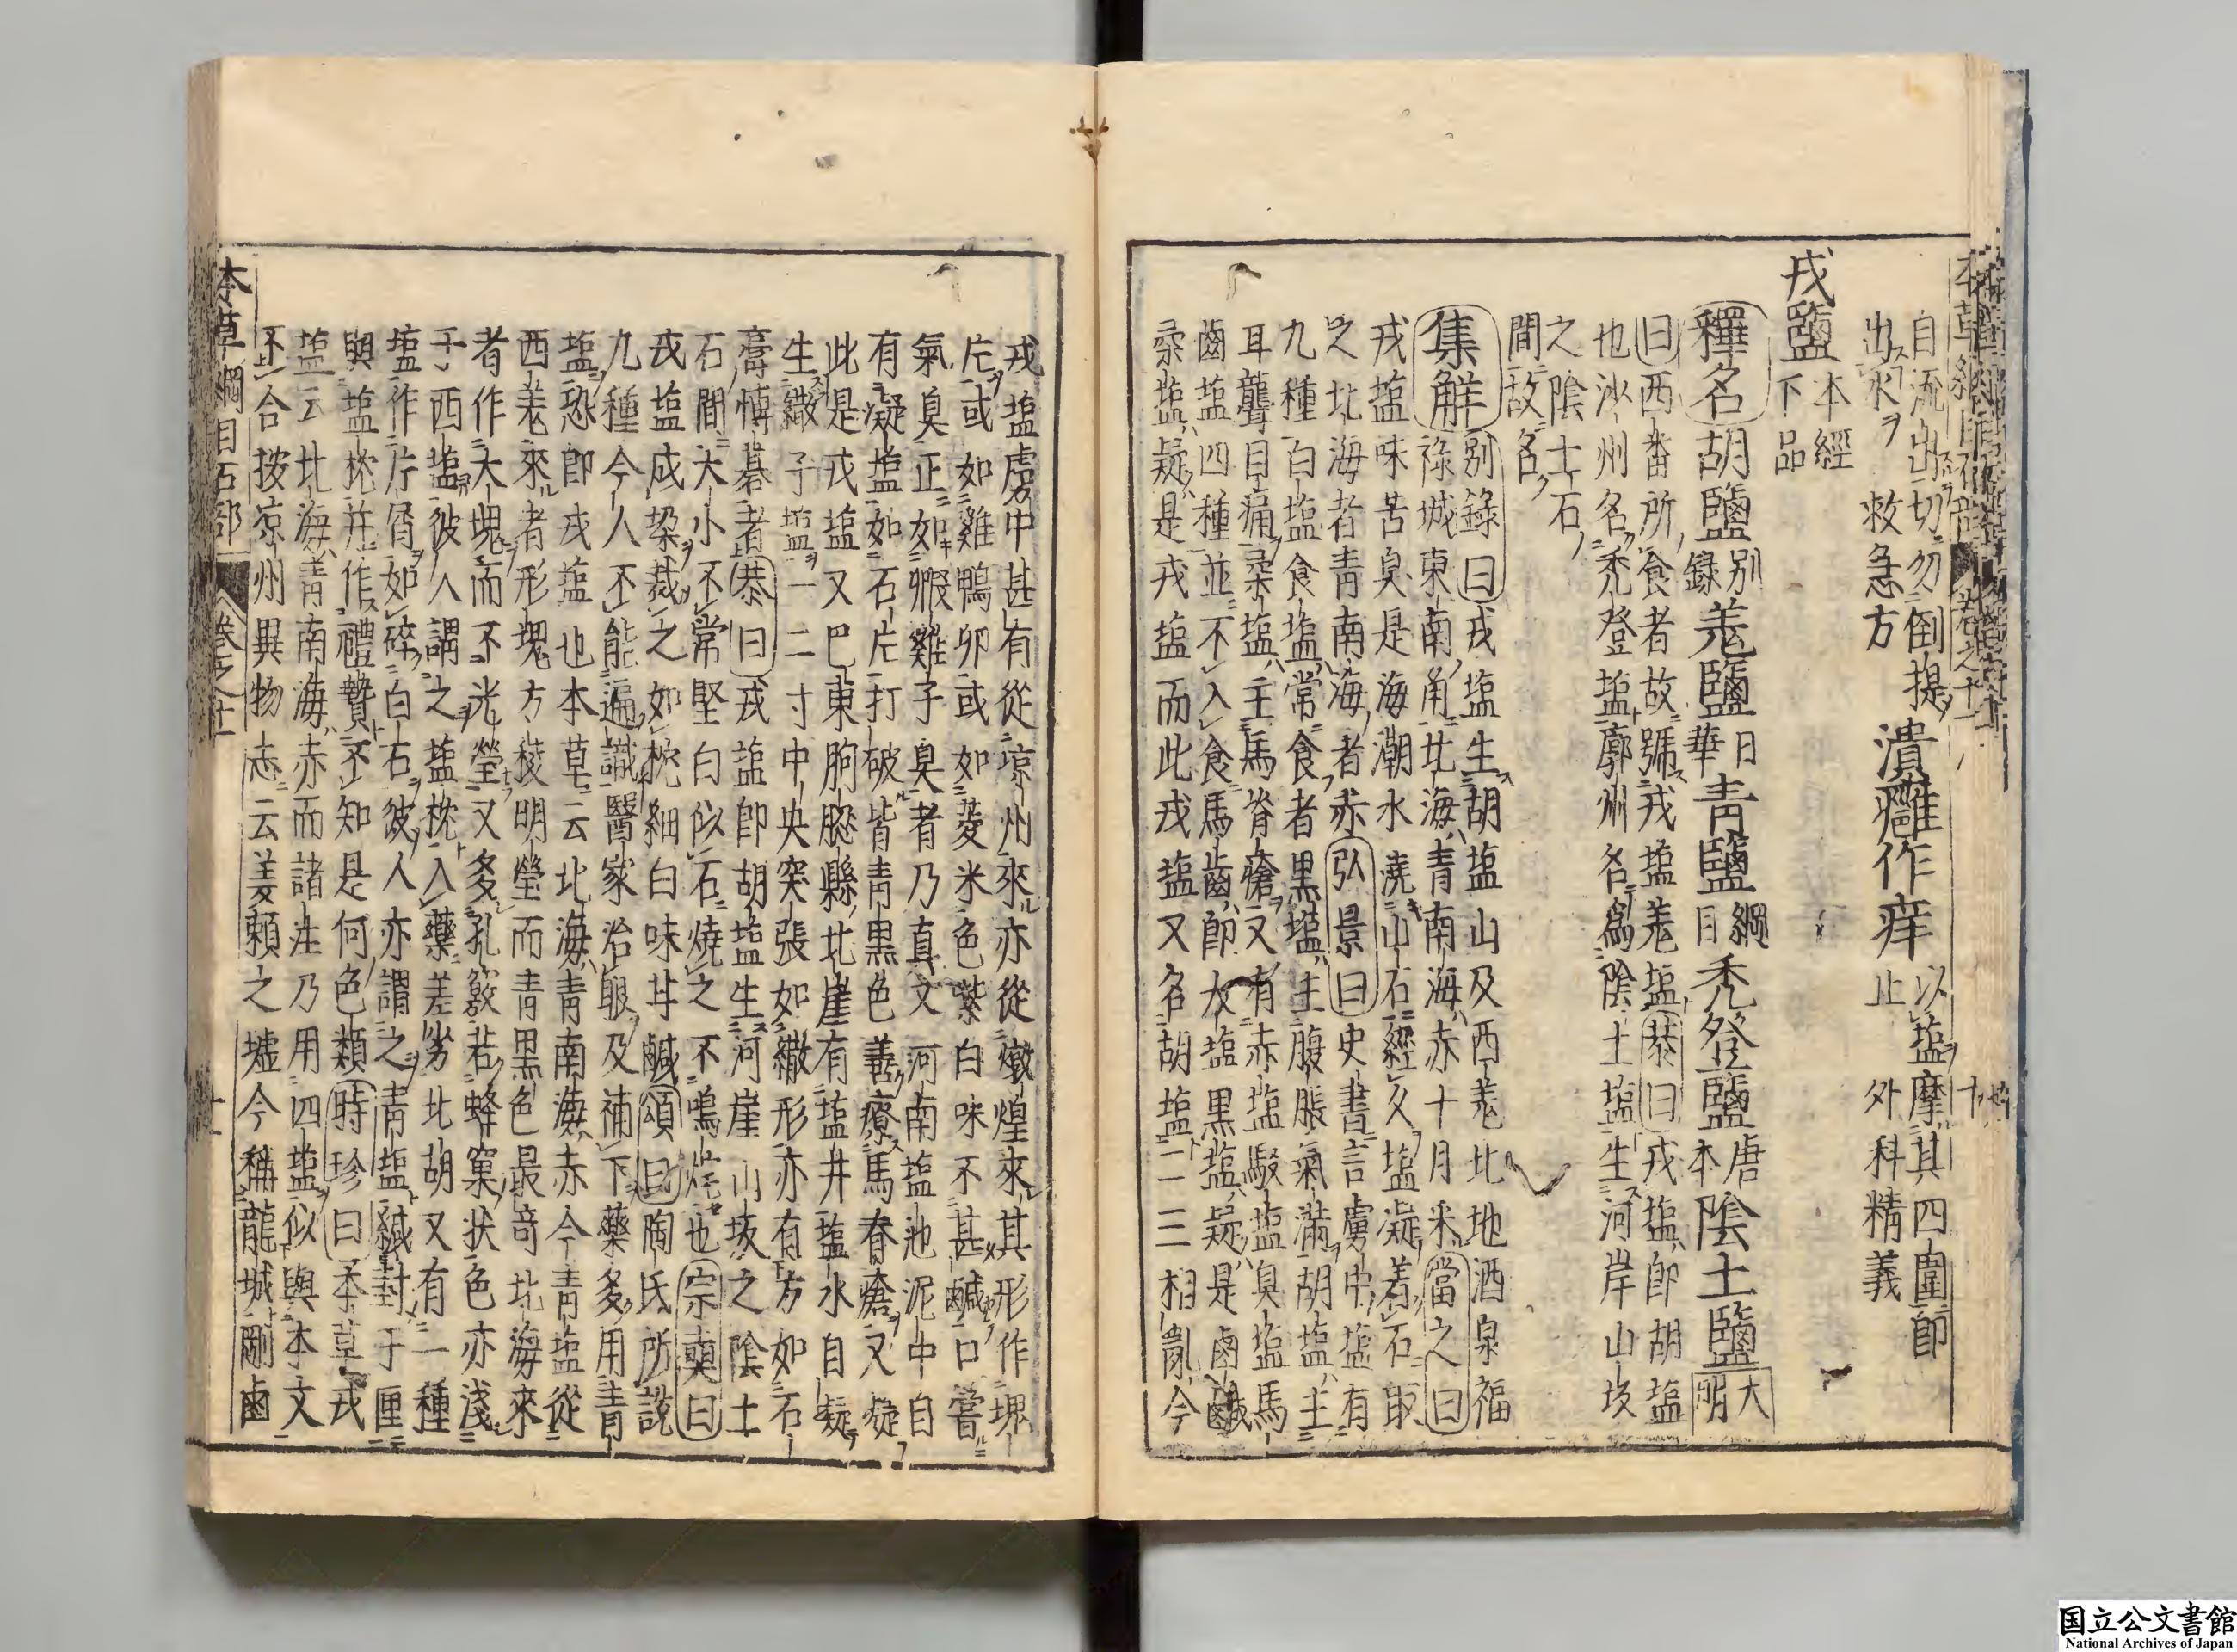 自流出切勿倒提潰癰作痒以塩摩其四圍即
出水救急方止外科精義
戎鹽本經下品
釋名胡鹽別錄羗鹽日華青鹽綱目禿登鹽唐本陰土鹽大明
曰西番所食者故號戎塩羗塩恭曰戎塩即胡塩
也沙州名禿登塩廓州名爲陰土塩生河岸山坂
之陰土石
間故名
集解別錄曰戎塩生胡塩山及西羗北地酒泉福
祿城東南角北海青南海赤十月采當之曰
戎塩味苦臭是海潮水澆山石經久塩凝着石取
之北海者青南海者赤弘景曰史書言虜中塩有
九種白塩食塩常食者黒塩主腹脹氣滿胡塩主
耳聾目痛柔塩主馬脊瘡又有赤塩駁塩臭塩馬
齒塩四種並不入食馬齒即大塩黒塩疑是鹵鹹
柔塩疑是戎塩而此戎塩又名胡塩二三相亂今
戎塩虜中甚有從凉州來亦從燉煌來其形作塊
片或如雞鴨卵或如菱米色紫白味不甚鹹口嘗
氣臭正如毈雞子臭者乃真又河南塩池泥中自
有凝塩如石片打破皆青黒色善療馬脊瘡又疑
此是戎塩又巴東朐䏰縣北崖有塩井塩水自凝
生繖子塩一二寸中央突張如繖形亦有方如石
膏慱棊者恭曰戎塩即胡塩生河崖山坂之陰土
石間大小不常堅白似石燒之不鳴灹也宗奭曰
戎塩成垜裁之如枕細白味甘鹹頌曰陶氏所說
九種今人不能遍識醫家治眼及補下藥多用青
塩恐即戎塩也本草云北海青南海赤今青塩從
西羗來者形塊方稜明瑩而青黒色最竒北海來
者作大塊而不光瑩又多孔竅若蜂窠狀色亦淺
于西塩彼人謂之塩枕入藥差劣北胡又有一種
塩作片屑如碎白石彼人亦謂之青塩緘封于匣
與塩枕并作禮贄不知是何色類時珍曰本草戎
塩云北海青南海赤而諸注乃用四塩似與本文
不合按凉州異物志云姜賴之墟今稱龍城剛鹵
本草綱目石部 卷之十一 十一
国立公文書館
National Archives of Japan